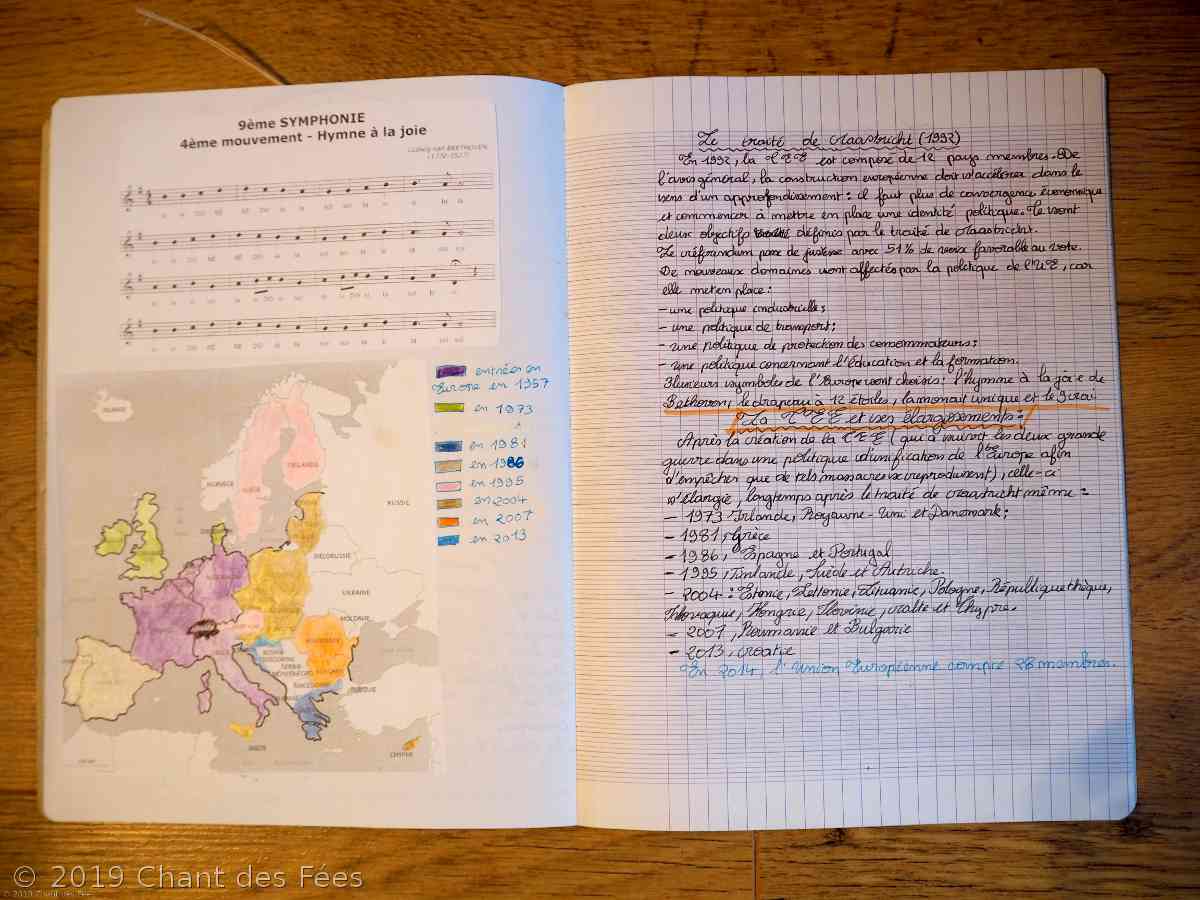 9ème SYMPHONIE
4ème mouvement - Hymne à la joie
Ludwig van BEETHOVEN
(1770-1827)
entrées en
Europe en 1957
en 1973
en 1981
en 1986
en 1995
en 2004
en 2007
en 2013
ISLANDE
NORVEGE
FINLANDE
RUSSIE
BIÉLORUSSIE
UKRAINE
MOLDAVIE
BOSNIE
SERBIE
MONTÉNÉGRO
MACÉDOINE
TURQUIE
CHYPRE
Le traité de Maastricht (1992)
En 1992, la CEE est composé de 12 pays membres. De
l'avis général, la construction européenne doit s'accélérer dans le
sens d'un approfondissement : il faut plus de convergence économique
et commencer à mettre en place une identité politique. Ce sont
deux objectifs définis par le traité de Maastricht.
Le référendum passe de justesse avec 51% de voix favorable au vote.
De nouveaux domaines sont affectés par la politique de l'UE, car
elle met en place :
- une politique industrielle ;
- une politique de transport ;
- une politique de protection des consommateurs ;
- une politique concernant l'éducation et la formation.
Plusieurs symboles de l'Europe sont choisis : l'hymne à la joie de
Bethoven, le drapeau à 12 étoiles, la monait unique et le 9 mai
La CEE et ses élargissements :
Après la création de la CEE ( qui à suivit les deux grande
guerre dans une politique d'unification de l'Europe afin
d'empêcher que de tels massacres se reproduisent), celle-ci
s'élargie, longtemps après le traité de Maastricht même :
- 1973 Irlande, Royaume-Uni et Danemark ;
- 1981, Grèce
- 1986, Espagne et Portugal
- 1995, Finlande, Suède et Autriche.
- 2004 : Estonie, Lettonie, Lituanie, Pologne, République thèque,
Slovaquie, Hongrie, Slovénie, Malte et Chypre.
- 2007, Roumanie et Bulgarie
- 2013, Croatie
En 2014, l'Union Européenne compte 28 membres.
© 2019 Chant des Fées
© 2019 Chant des Fées